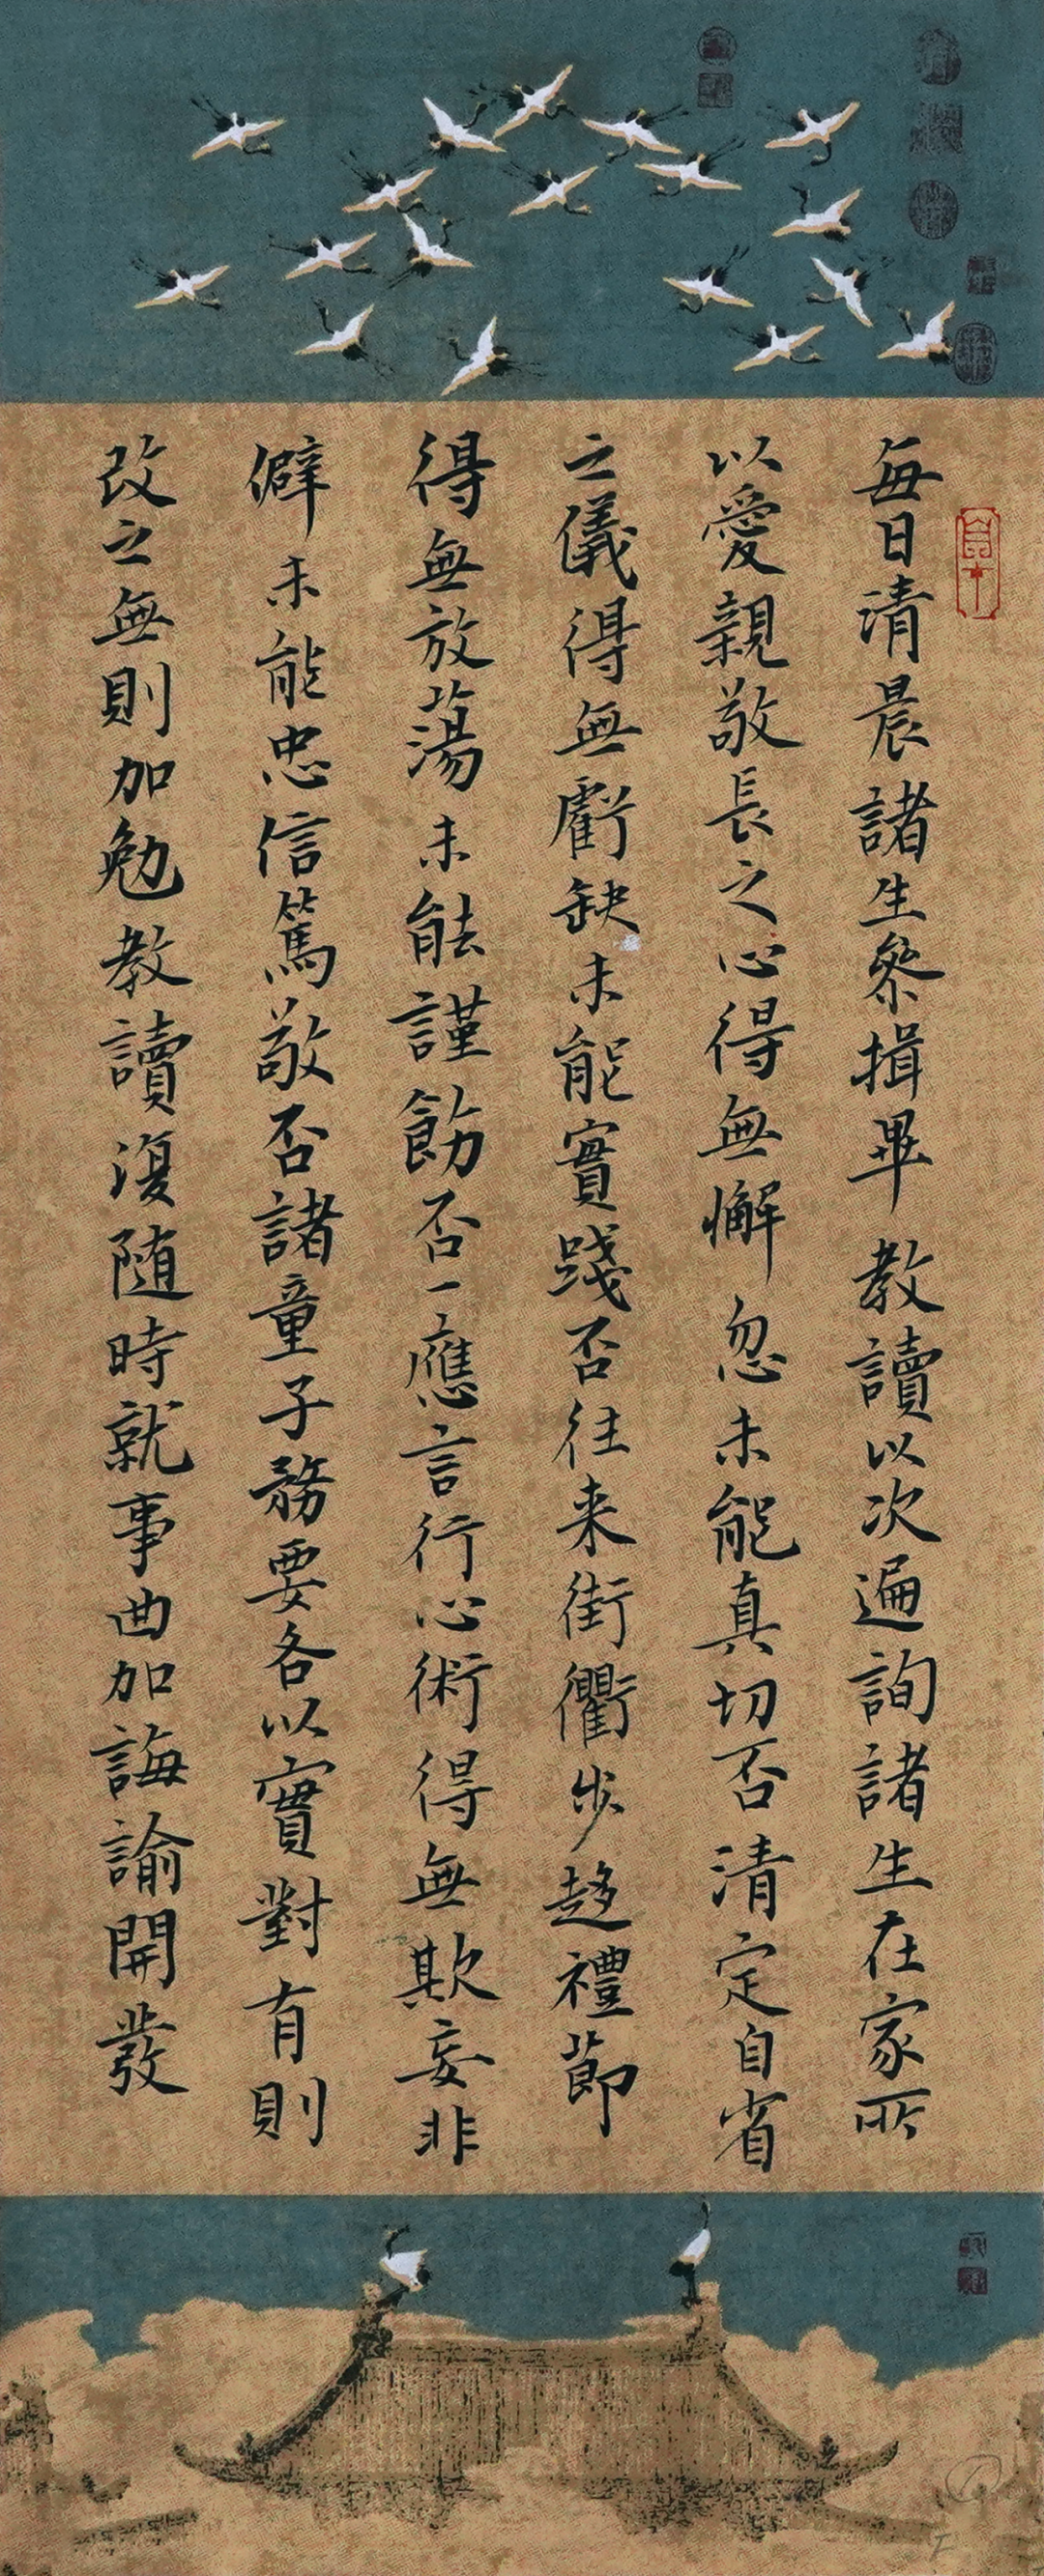 每日清晨諸生參揖畢教讀以次遍詢諸生在家所
以愛親敬長之心得無懈忽未能真切否清定自省
之儀得無虧缺未能實踐否往来街衢步趨禮節
得無放蕩未能謹飭否一應言行心術得無欺妄非
僻未能忠信篤敬否諸童子務要各以實對有則
改之無則加勉教讀復随時就事曲加誨諭開發